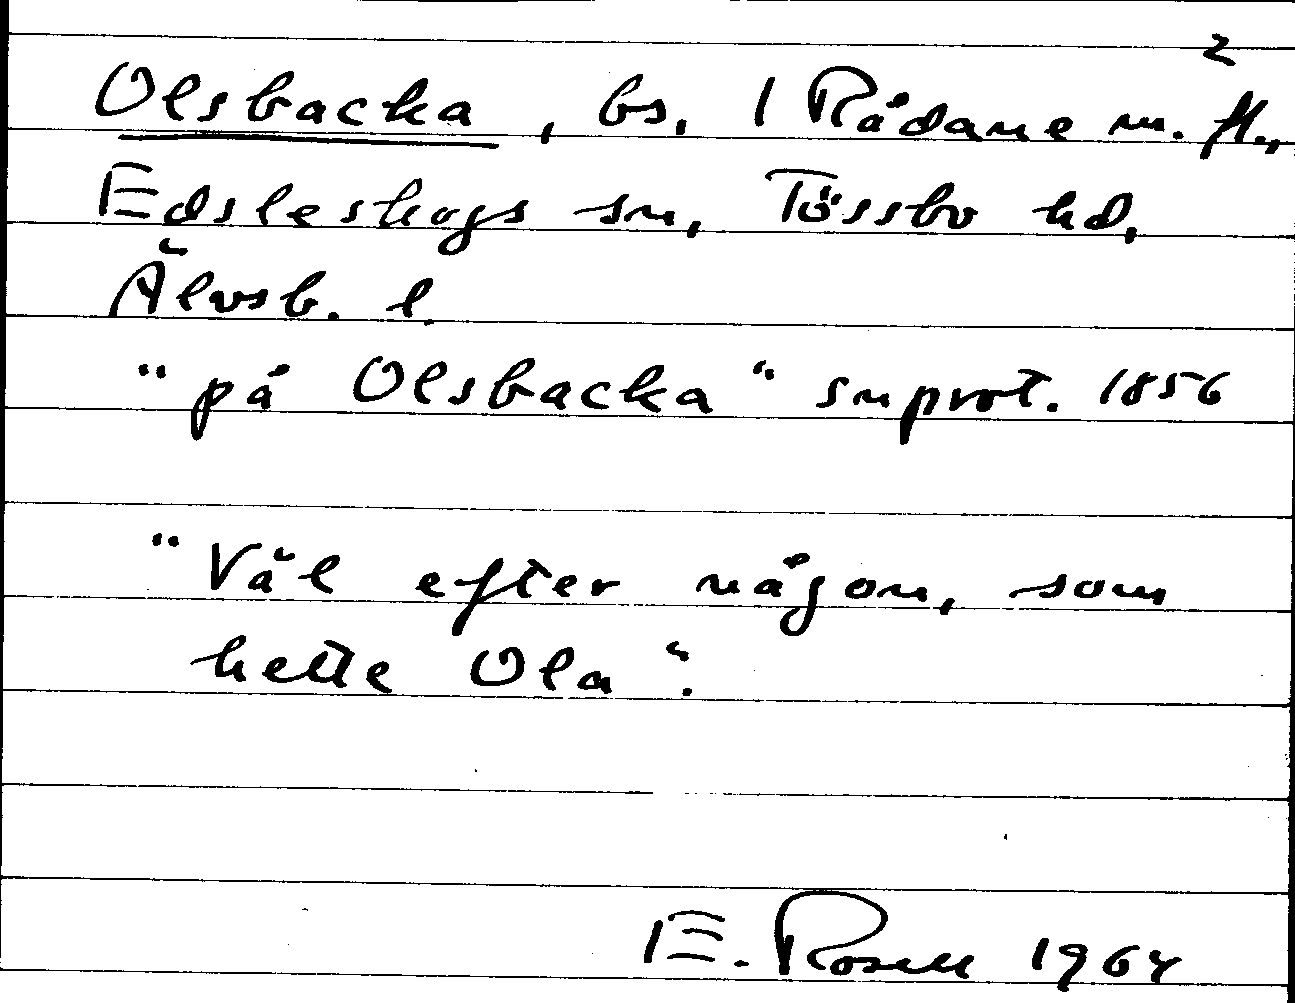 2
Olsbacka, bs, 1 Rådane m. fl.,
Edsleskogs sn, Tössbo hd,
Älvsb. l.
"på Olsbacka" snprot. 1856
"Väl efter någon, som
hette Ola".
E. Rosell 1964